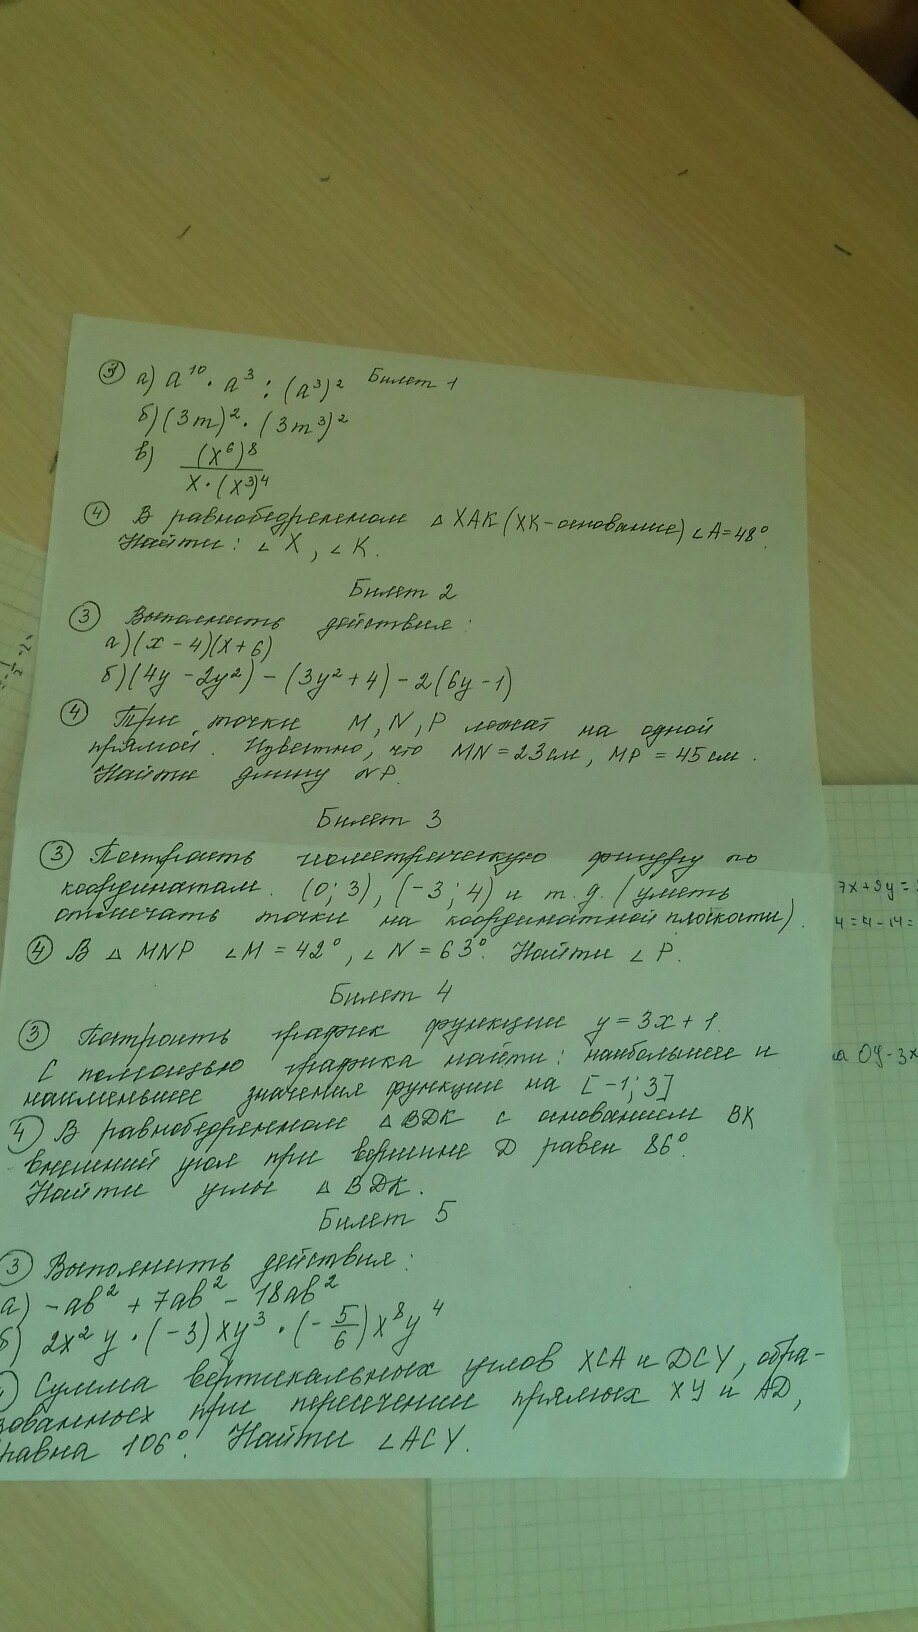 ③ а) a¹⁰ · a³ : (a³)² Билет 1
б) (3m)² · (3m³)²
в) (x⁶)⁸
x · (x³)⁴
④ В равнобедренном △ XAK (XK - основание) ∠A = 48°.
Найти: ∠ X, ∠ K.
Билет 2
③ Выполнить действия:
а) (x - 4)(x + 6)
б) (4y - 2y²) - (3y² + 4) - 2(6y - 1)
④ Три точки M, N, P лежат на одной
прямой. Известно, что MN = 23 см, MP = 45 см.
Найти длину NP.
Билет 3
③ Построить геометрическую фигуру по
координатам. (0; 3), (-3; 4) и т.д. (уметь
отмечать точки на координатной плоскости).
④ В △ MNP ∠M = 42°, ∠N = 63°. Найти ∠ P.
Билет 4
③ Построить график функции y = 3x + 1.
С помощью графика найти: наибольшее и
наименьшее значения функции на [-1; 3]
④ В равнобедренном △ ВДК с основанием ВК
внешний угол при вершине Д равен 86°.
Найти углы △ ВДК.
Билет 5
③ Выполнить действия:
а) -ab² + 7ab² - 18ab²
б) 2x²y · (-3)xy³ · (-5/6)x⁸y⁴
Сумма вертикальных углов XCA и DCY, обра-
зованных при пересечении прямых XY и AD,
равна 106°. Найти ∠ACY.
7x+9y=
4=4-14=
на Oy-3x